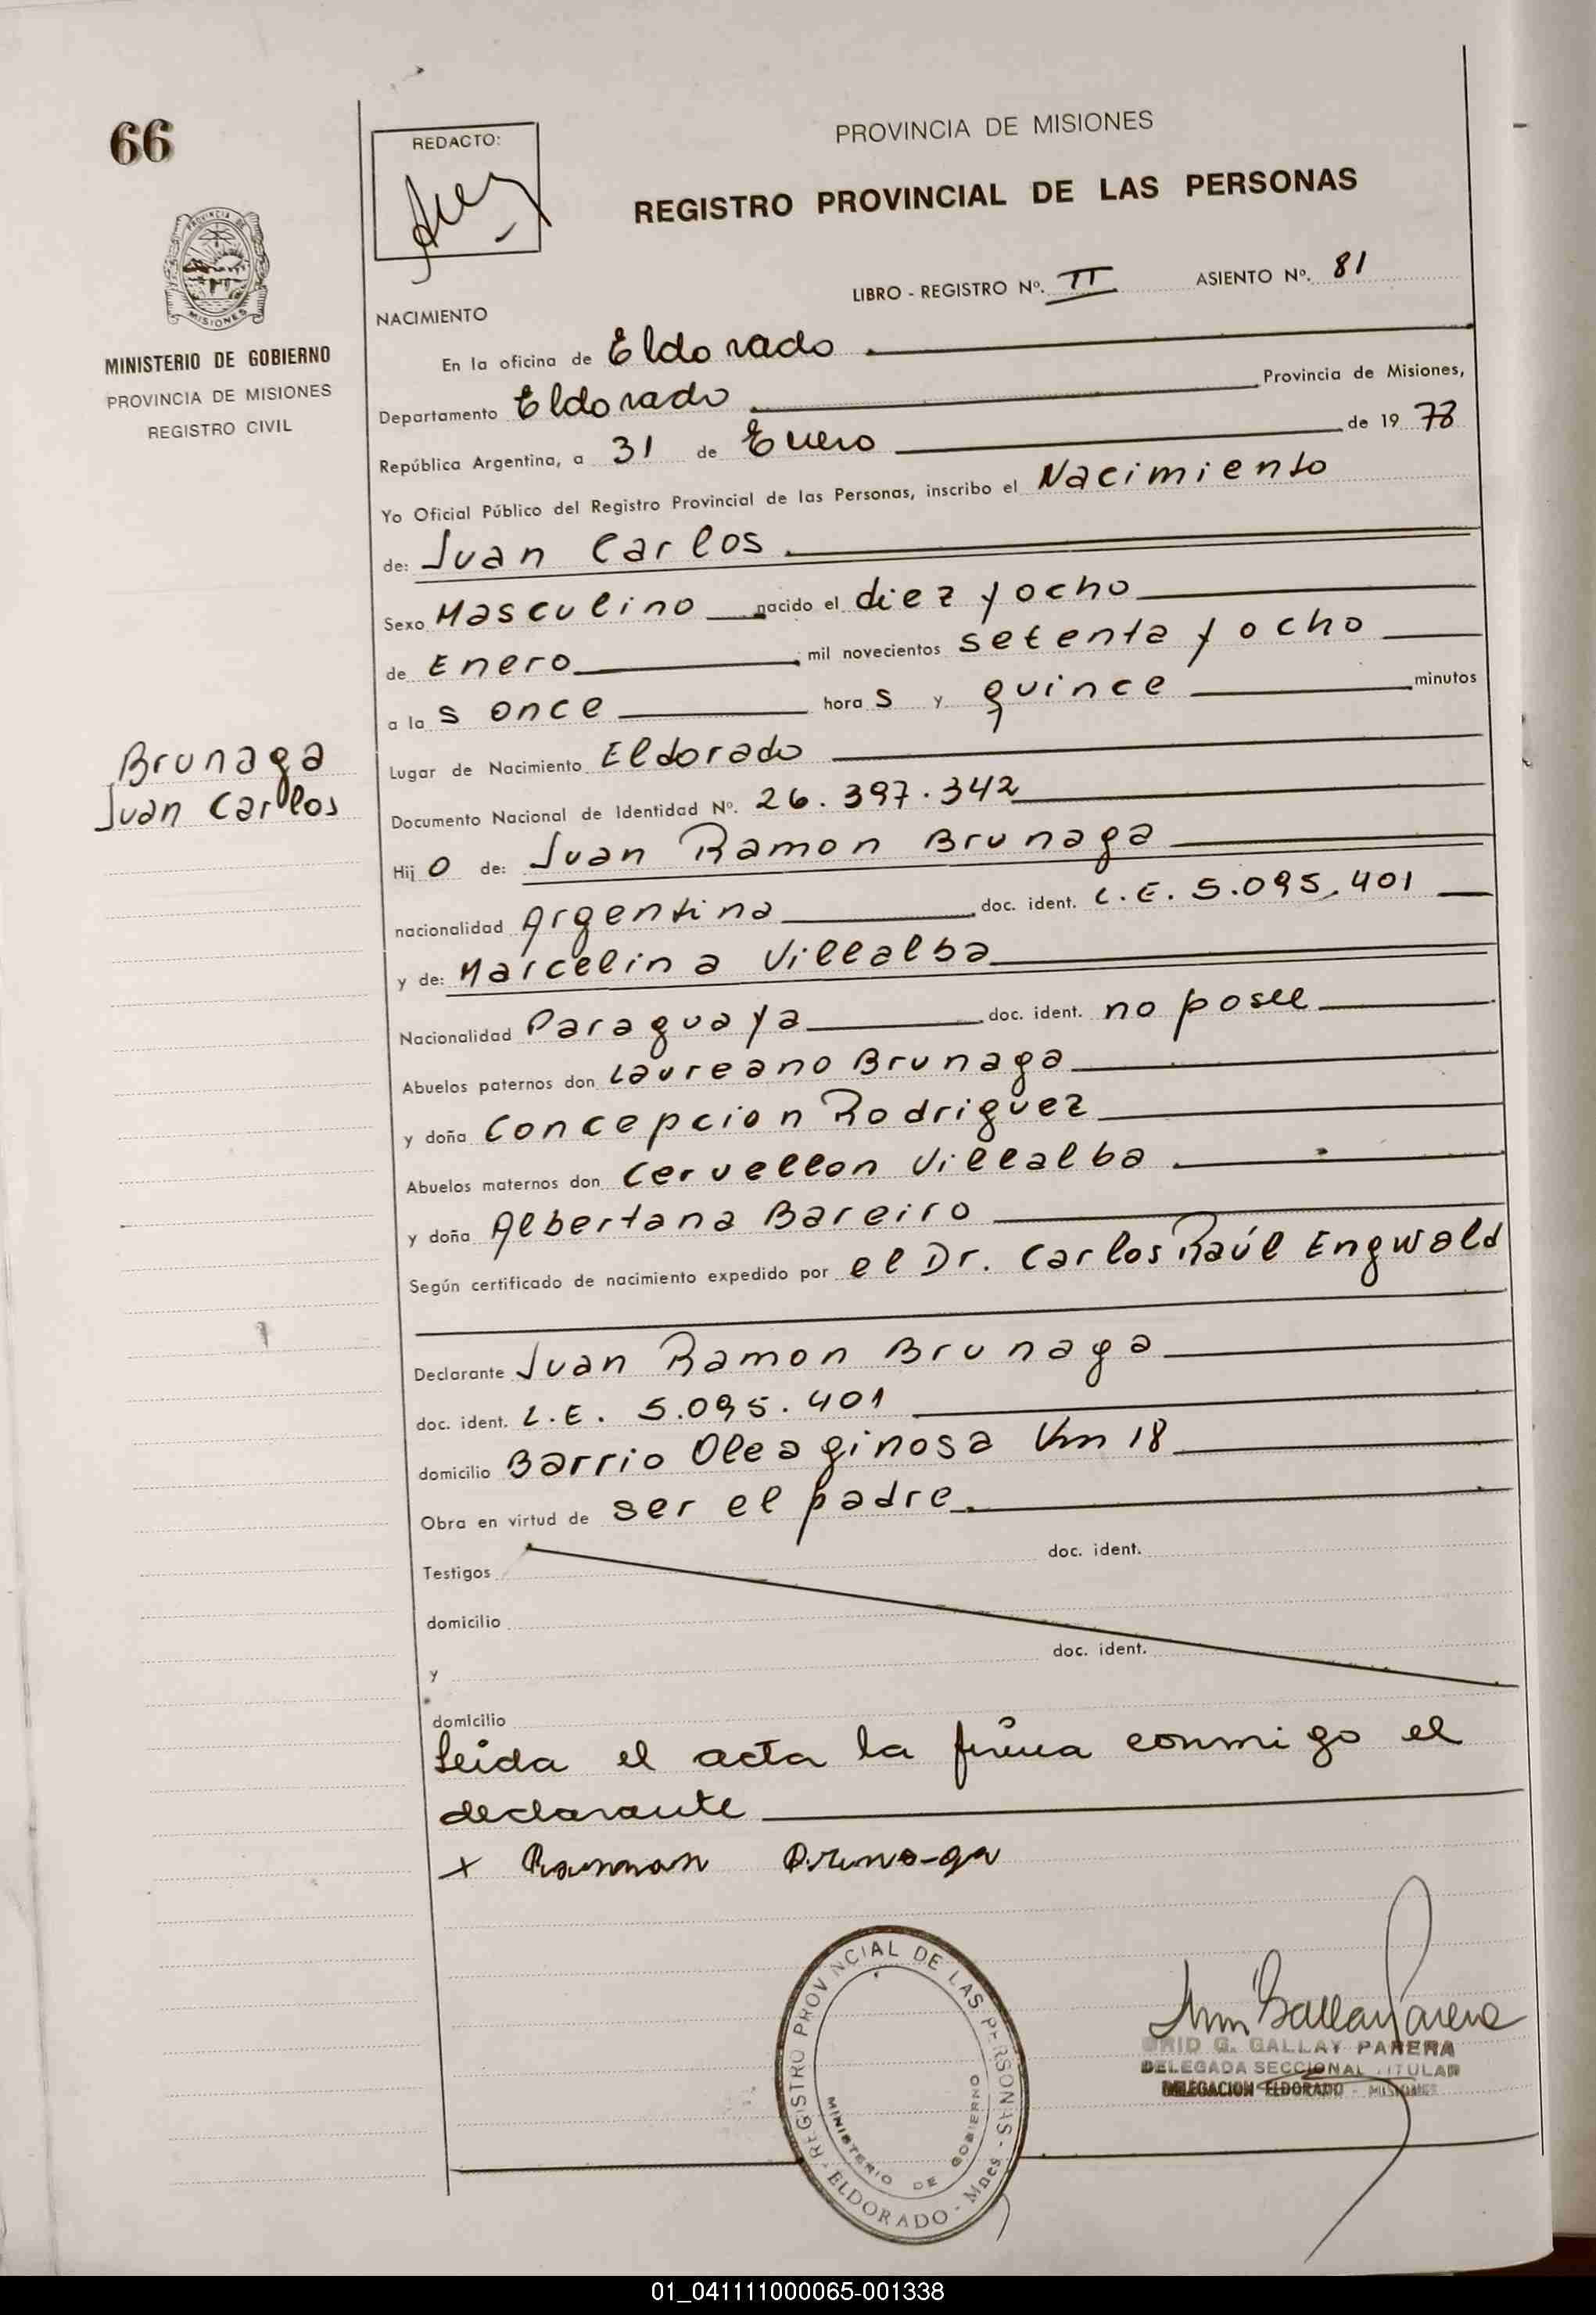 66
REDACTO:
PROVINCIA DE MISIONES
REGISTRO PROVINCIAL DE LAS PERSONAS
PROVINCIA DE
MISIONES
MINISTERIO DE GOBIERNO
PROVINCIA DE MISIONES
REGISTRO CIVIL
LIBRO - REGISTRO Nº. II ASIENTO Nº. 81
NACIMIENTO
En la oficina de Eldorado
Departamento Eldorado Provincia de Misiones,
República Argentina, a 31 de Enero de 19 78
Yo Oficial Público del Registro Provincial de las Personas, inscribo el Nacimiento
de: Juan Carlos
Sexo Masculino nacido el diez y ocho
de Enero mil novecientos setenta y ocho
a la s once hora s y quince minutos
Brunaga
Juan Carlos
Lugar de Nacimiento Eldorado
Documento Nacional de Identidad Nº. 26.397.342
Hij o de: Juan Ramon Brunaga
nacionalidad Argentina doc. ident. L.E. 5.095.401
y de: Marcelina Villalba
Nacionalidad Paraguaya doc. ident. no posee
Abuelos paternos don Laureano Brunaga
y doña Concepcion Rodriguez
Abuelos maternos don Cervellon Villalba
y doña Albertana Bareiro
Según certificado de nacimiento expedido por el Dr. Carlos Raúl Engwald
Declarante Juan Ramon Brunaga
doc. ident. L.E. 5.095.401
domicilio Barrio Oleaginosa Km 18
Obra en virtud de ser el padre.
Testigos doc. ident.
domicilio
y doc. ident.
domicilio
Leida el acta la firma conmigo el
declarante
x Ramon Brunaga
REGISTRO PROVINCIAL DE LAS PERSONAS - ELDORADO - Mnes
MINISTERIO DE GOBIERNO
G. GALLAY PARERA
DELEGADA SECCIONAL TITULAR
DELEGACION ELDORADO - MISIONES
01_041111000065-001338